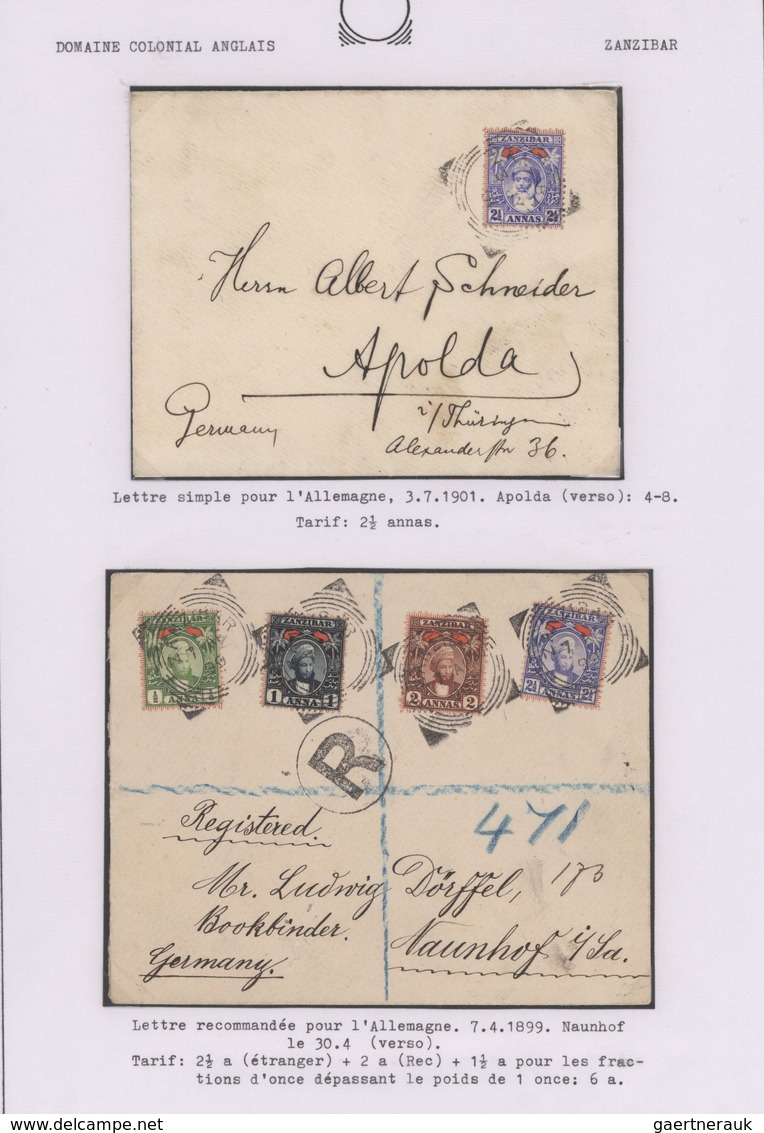 DOMAINE COLONIAL ANGLAIS ZANZIBAR
ZANZIBAR
2½ 2½
ANNAS
Herrn Albert Schneider
Apolda
i/Thüringen
Germany
Alexanderstr 36.
Lettre simple pour l'Allemagne, 3.7.1901. Apolda (verso): 4-8.
Tarif: 2½ annas.
ZANZIBAR ZANZIBAR
½ 1 1 2 2 2½ 2½
ANNA ANNA ANNAS ANNAS
R
Registered.
478
Mr. Ludwig Dörffel, 173
Bookbinder. Naunhof i/Sa.
Germany.
Lettre recommandée pour l'Allemagne. 7.4.1899. Naunhof
le 30.4 (verso).
Tarif: 2½ a (étranger) + 2 a (Rec) + 1½ a pour les frac-
tions d'once dépassant le poids de 1 once: 6 a.
www.delcampe.net gaertnerauk